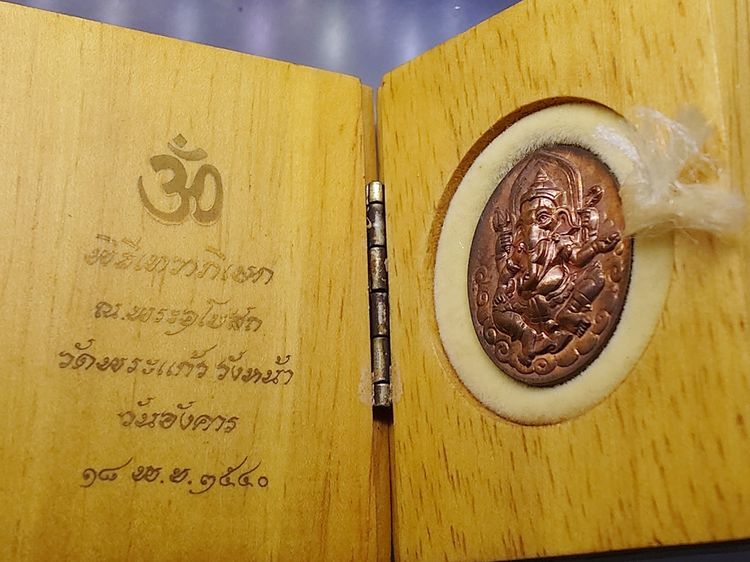 ॐ
พิธีเทวาภิเษก
ณ.พระอุโบสถ
วัดพระแก้ว วังหน้า
วันอังคาร
๑๘ พ.ย. ๒๕๔๐